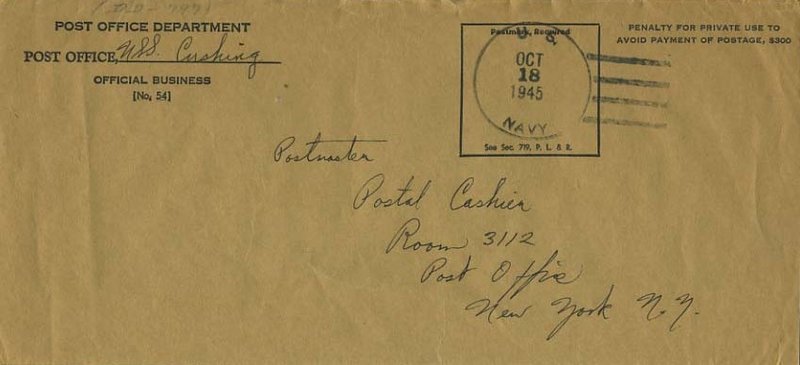 POST OFFICE DEPARTMENT
POST OFFICE, USS. Cushing
OFFICIAL BUSINESS
[No. 54]
Postmark Required
U. S.
OCT
18
1945
NAVY
See Sec. 719, P. L. & R.
PENALTY FOR PRIVATE USE TO
AVOID PAYMENT OF POSTAGE, $300
Postmaster
Postal Cashier
Room 3112
Post Office
New York N.Y.